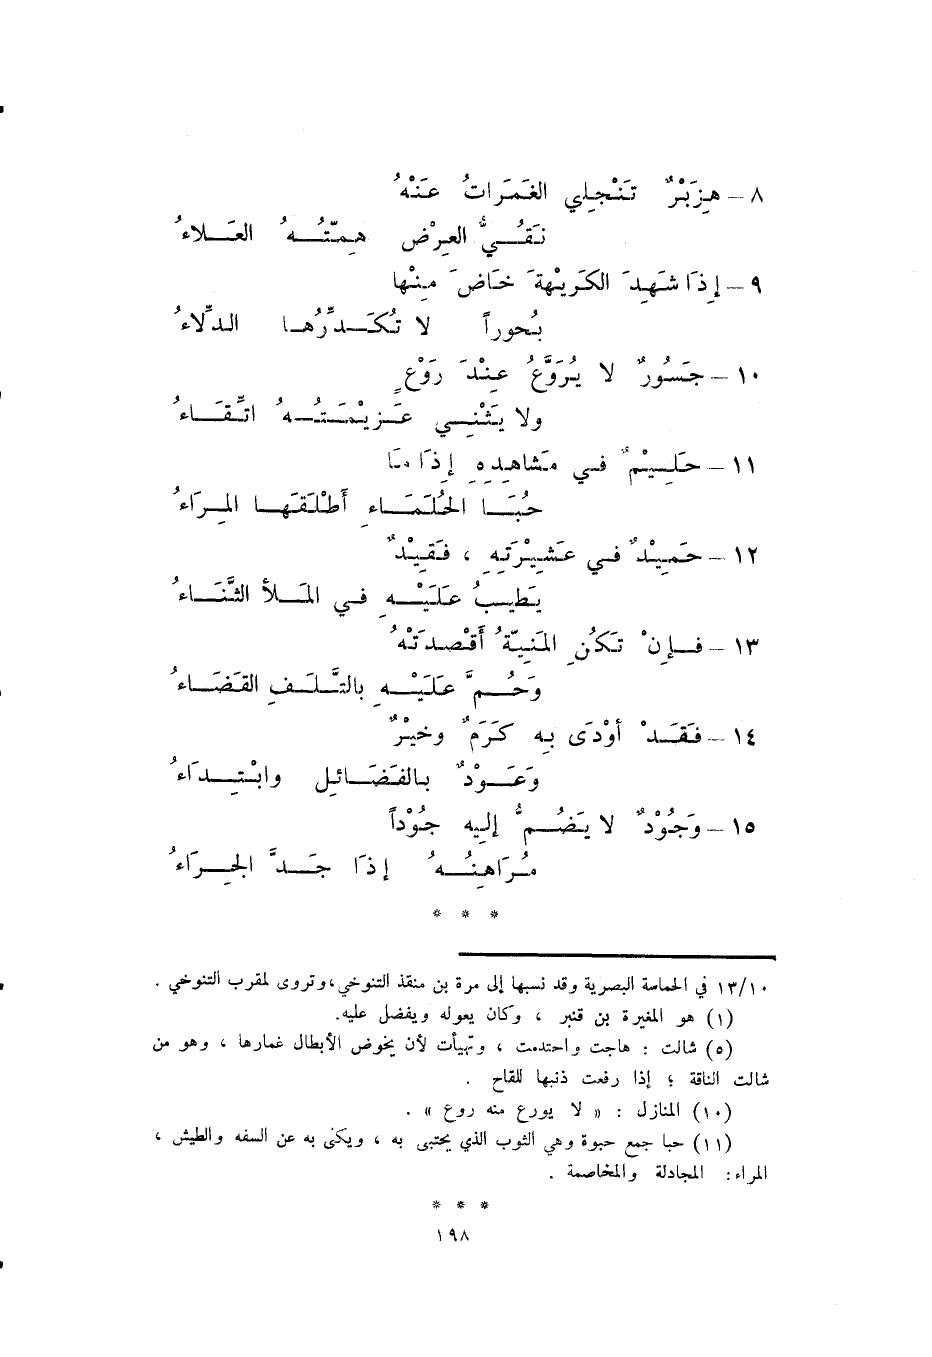 ٨ – هِزَبْرٌ تَنْجلِي الغَمَرَاتُ عَنْهُ
نَقُـــيُّ العِرْضِ هِمَّتُـــهُ العَـــلاءُ
٩ – إِذَا شَهِدَ الكَرِيْهَةَ خَاضَ مِنْها
بُحوراً لا تُكَـــدِّرُهـا الدِّلاءُ
١٠ – جَسُورٌ لا يُرَوَّعُ عِنْدَ رَوْعٍ
ولا يَثْنِـــي عَـزِيْمَتُـــهُ اتِّقَـــاءُ
١١ – حَلِيْمٌ في مَشاهِدِهِ إِذَا مَا
حُبَـــا الحُلَمَـــاءِ أَطْلَقَهـا المِـرَاءُ
١٢ – حَمِيْدٌ في عَشِيْرَتِهِ ، فَقِيْدٌ
يَطِيبُ عَلَيْـــهِ في المَـــلأ الثَّنَـاءُ
١٣ – فـإِنْ تَكُنِ المَنِيّةُ أَقْصدَتْهُ
وَحُـــمَّ عَلَيْـــهِ بالتَّلَـفِ القَضَـاءُ
١٤ – فَقَـدْ أوْدَى بِه كَرَمٌ وخيْرٌ
وَعَـــوْدٌ بـالفَضَـائِل وابْتِـدَاءُ
١٥ – وَجُوْدٌ لا يَضُـــمُّ إليه جُوْداً
مُـرَاهِنُـــهُ إذَا جَـــدَّ الجِـرَاءُ
* * *
١٣/١٠ في الحماسة البصرية وقد نسبها إلى مرة بن منقذ التنوخي، وتروى لمقرب التنوخي .
(١) هو المغيرة بن قنبر ، وكان يعوله ويفضل عليه.
(٥) شالت : هاجت واحتدمت ، وتهيأت لأن يخوض الأبطال غمارها ، وهو من
شالت الناقة ؛ إذا رفعت ذنبها للقاح .
(١٠) المنازل : « لا يورع منه روع » .
(١١) حبا جمع حبوة وهي الثوب الذي يحتبى به ، ويكنى به عن السفه والطيش ،
المراء: المجادلة والمخاصمة .
* * *
١٩٨